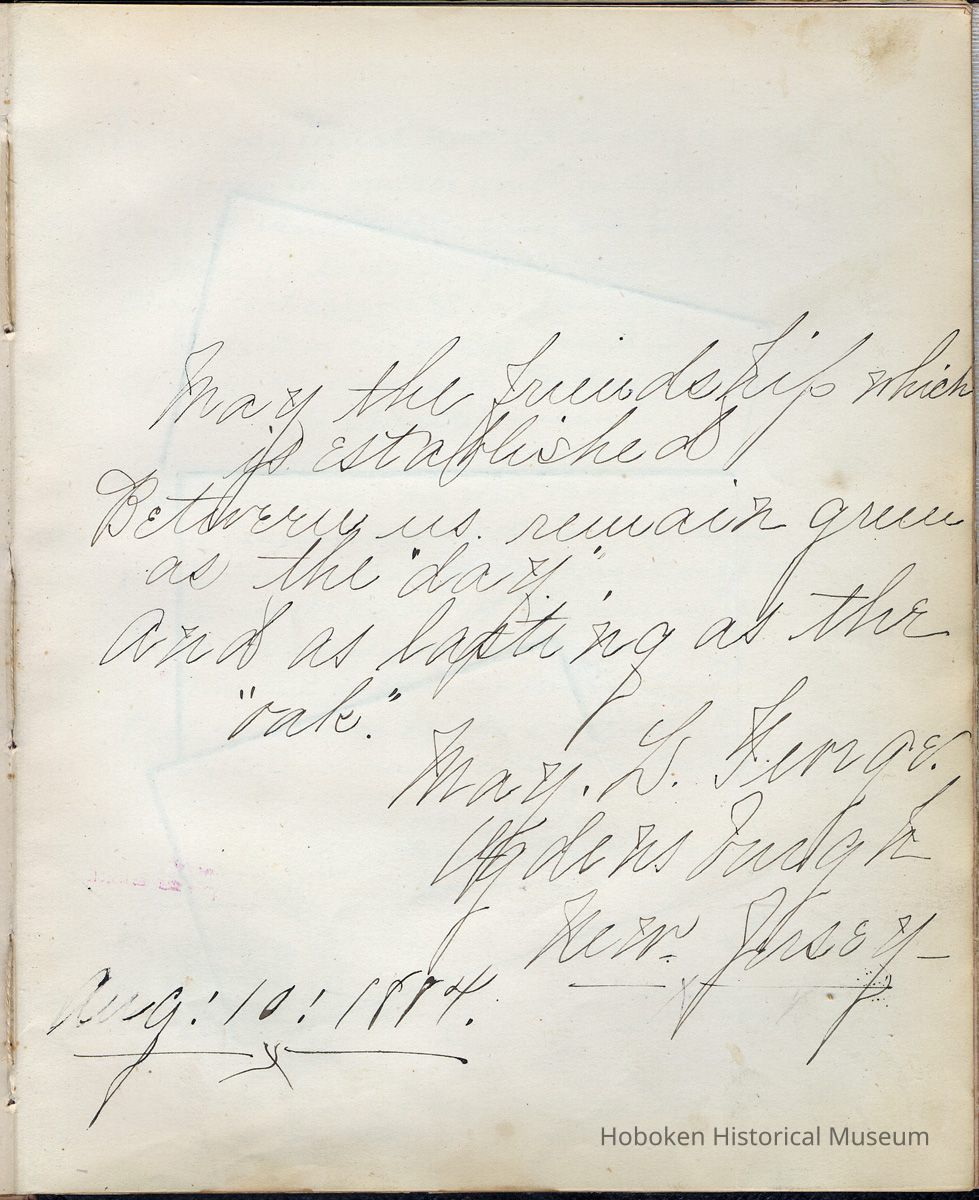 May the friendship which
is established
Between us. remain green
as the "day"
And as lasting as the
"oak."
May. L. George.
Ogdensburgh
New. Jersey_
Aug: 10: 1884.
Hoboken Historical Museum